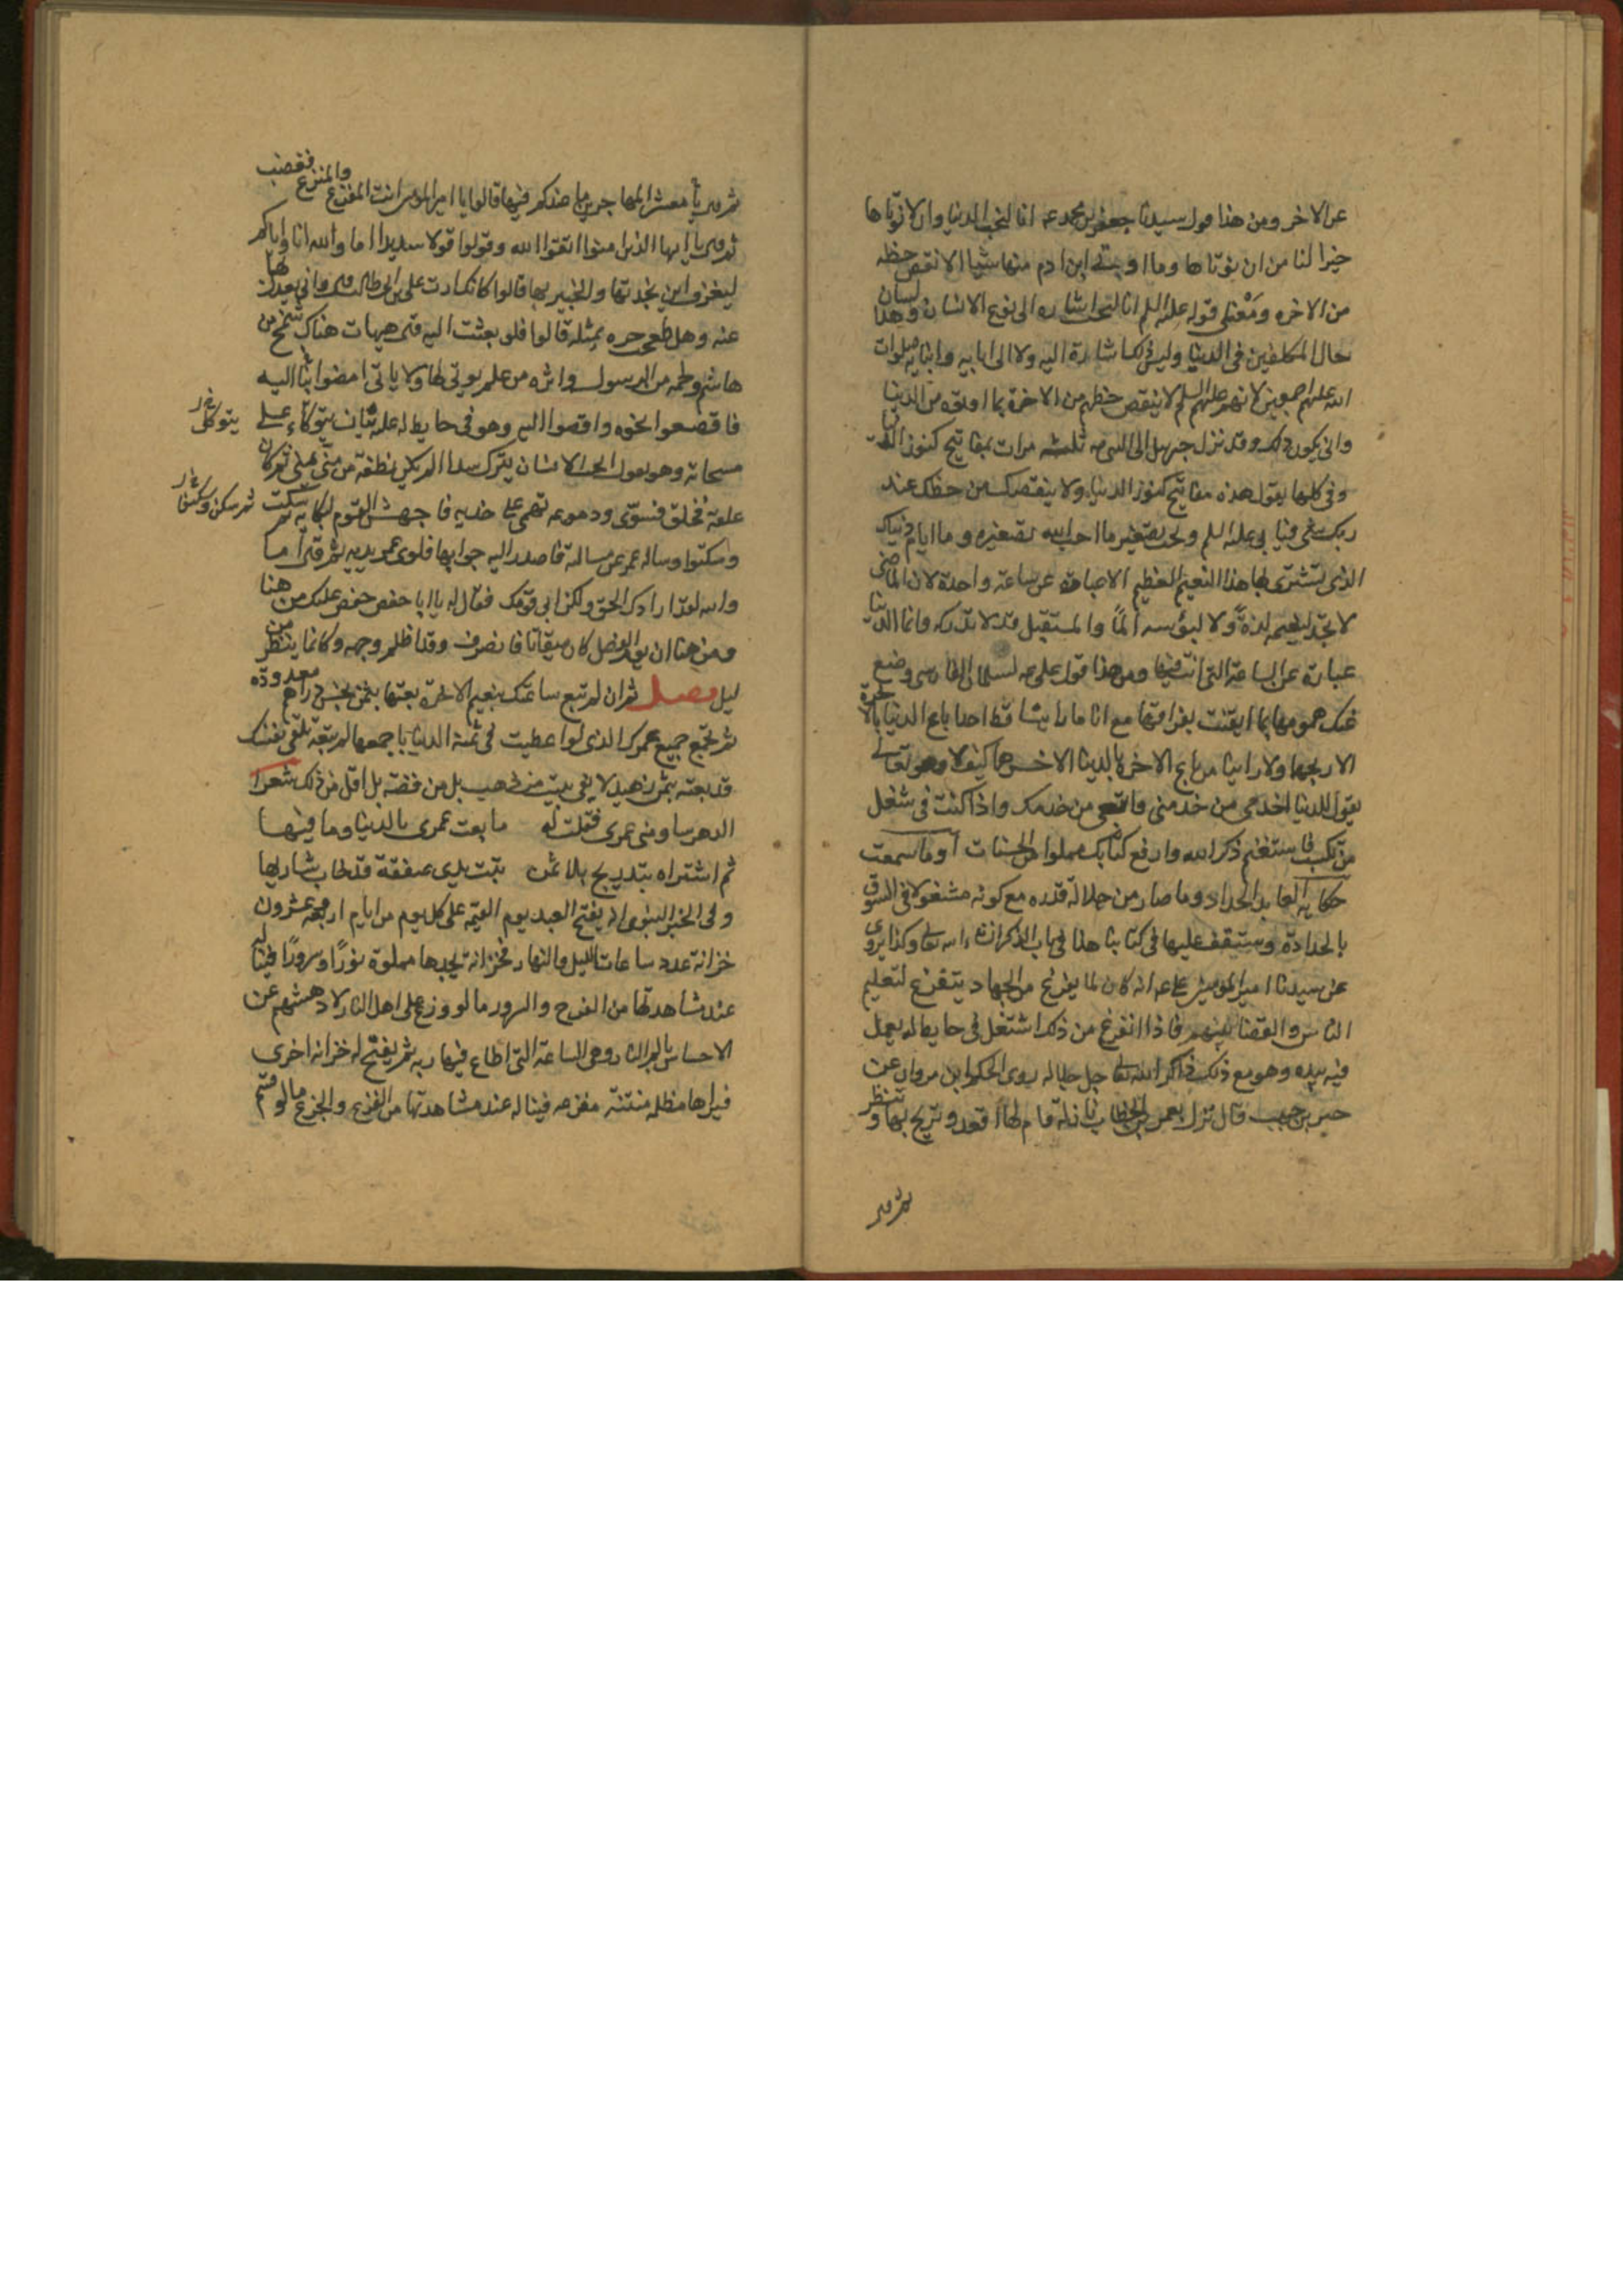 عن الاخر ومن هذا قول سيدنا جعفر بن محمد عـ انا لنحب الدنيا وان لا نؤتاها
خيرا لنا من ان نؤتاها وما اوتى ابن ادم منها شيا الا نقص حظه
من الاخره ومعنى قوله عليه السلم انا لنحب اشاره الى نوع الانسان وهذا لسان
حال المكلفين فى الدنيا وليس ذلك اشارة اليه ولا الى ابايه وابنايه صلوات
الله عليهم اجمعين لانهم عليهم السلم لا ينقص حظهم من الاخرة بما اوتوه من الدنيا
وانى يكون ذلك وقد نزل جبرييل الى النبى صـ ثلثه مرات بمفاتيح كنوز الدنيا
وفى كلها يقول هذه مفاتيح كنوز الدنيا ولا ينقصك من حظك عند
ربك شى فيابى عليه السلم ويحب تصغير ما احب الله تصغيره وما ايام دنياك
الذى تشترى بها هذا النعيم العظيم الا عبارة عن ساعة واحدة لان الماضى
لا تجد لنعيمه لذة ولا لبؤسه ألمًا والمستقبل قد لا تدركه وانما الدنيا
عبارة عن الساعة التى انت فيها ومن هذا قول على عـ لسلمان الفارسى وضع
عنك همومها بما ايقنت بفراقها مع انا ما راينا قط احدا باع الدنيا بالاخرة
الا ربحها ولا راينا من باع الاخرة بالدنيا الا خسرهما كيف لا وهو تعالى
يقول للدنيا اخدمى من خدمنى واتعبى من خدمك واذا كنت فى شغل
من تكسب فاستغنم ذكر الله وارفع كتابك مملوا من الحسنات أوما سمعت
حكاية العابد الحداد وما صار من جلالة قدره مع كونه مشغولا فى السوق
بالحدادة وستقف عليها فى كتابنا هذا فى باب الذكر انشاء الله تعالى وكذا يروى
عن سيدنا امير المومنين على عـ انه كان لما يفرغ من الجهاد يتفرغ لتعليم
الناس والقضا بينهم فاذا انفرغ من ذلك اشتغل فى حايط له يعمل
فيه بيده وهو مع ذلك ذاكر الله تعالى جل جلاله روى الحكم ابن مروان عن
جبير بن حبيب قال نزل بعمر بن الخطاب نازلة قام لها وقعد وترنح بها وتنظر
ثم قال
ثم قال يا معشر المهاجرين ما عندكم فيها قالوا يا امير المومنين انت المفزع والمنزع فغضب
ثم قال يا ايها الذين امنوا اتقوا الله وقولوا قولا سديدا اما والله انا واياكم
لنعرف اين بجدتها والخبير بها قالوا كانك اردت على بن ابى طالب قال وانى يعدل بها
عنه وهل طفحت حره بمثله قالوا فلو بعثت اليه قال هيهات هناك شمخ من
هاشم ولحمه من الرسول واثره من علم يوتى لها ولا ياتى امضوا بنا اليه
فاقصفوا نحوه وافضوا اليه وهو فى حايط له عليه تبان يتوكاء على
يتوكل
مسحاته وهو يقول ايحسب الانسان ان يترك سدا الم يكن نطفة من منى يمنى ثم كان
علقة فخلق فسوى ودموعه تهمى على خديه فاجهش القوم لبكايه ثم سكت
ثم سكن وسكنوا
وسكتوا وساله عمر عن مسالة فاصدر اليه جوابها فلوى عمر يديه ثم قال اما
والله لقد ارادك الحق ولكن ابى قومك فقال له يا ابا حفص خفض عليك من هنا
ومن هنا ان يوم الفصل كان ميقاتا فانصرف وقد اظلم وجهه وكانما ينظر من
ليل فصل ثم ان لم تبع ساعتك بنعيم الاخرة بعتها بثمن بخس دراهم معدودة
ثم تجمع جميع عمرك الذى لو اعطيت فى ثمنه الدنيا باجمعها لم تبعه تلقى نفسك
قد بعته بثمن زهيد لا يفى ببيت من ذهب بل من فضة بل اقل من ذلك شعرا
الدهر ساومنى عمرى فقلت له ما بعت عمرى بالدنيا وما فيها
ثم اشتراه بتدريج بلا ثمن تبت يدى صفقة قد خاب شاريها
وفى الخبر النبوى انه يفتح للعبد يوم القيمة على كل يوم من ايام اربعه وعشرون
خزانة عدد ساعات الليل والنهار فخزانة يجدها مملوة نورًا وسرورًا فيناله
عند مشاهدتها من الفرح والسرور ما لو وزع على اهل النار لادهشهم عن
الاحساس بالم النار وهى الساعة التى اطاع فيها ربه ثم يفتح له خزانه اخرى
فيراها مظلمه منتنه مفزعه فيناله عند مشاهدتها من الفزع والجزع ما لو قسم